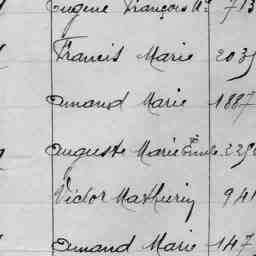 Eugène François M. 713
Francis Marie 2035
Amand Marie 1887
Auguste Marie Emile 2256
Victor Mathurin 941
Amand Marie 147